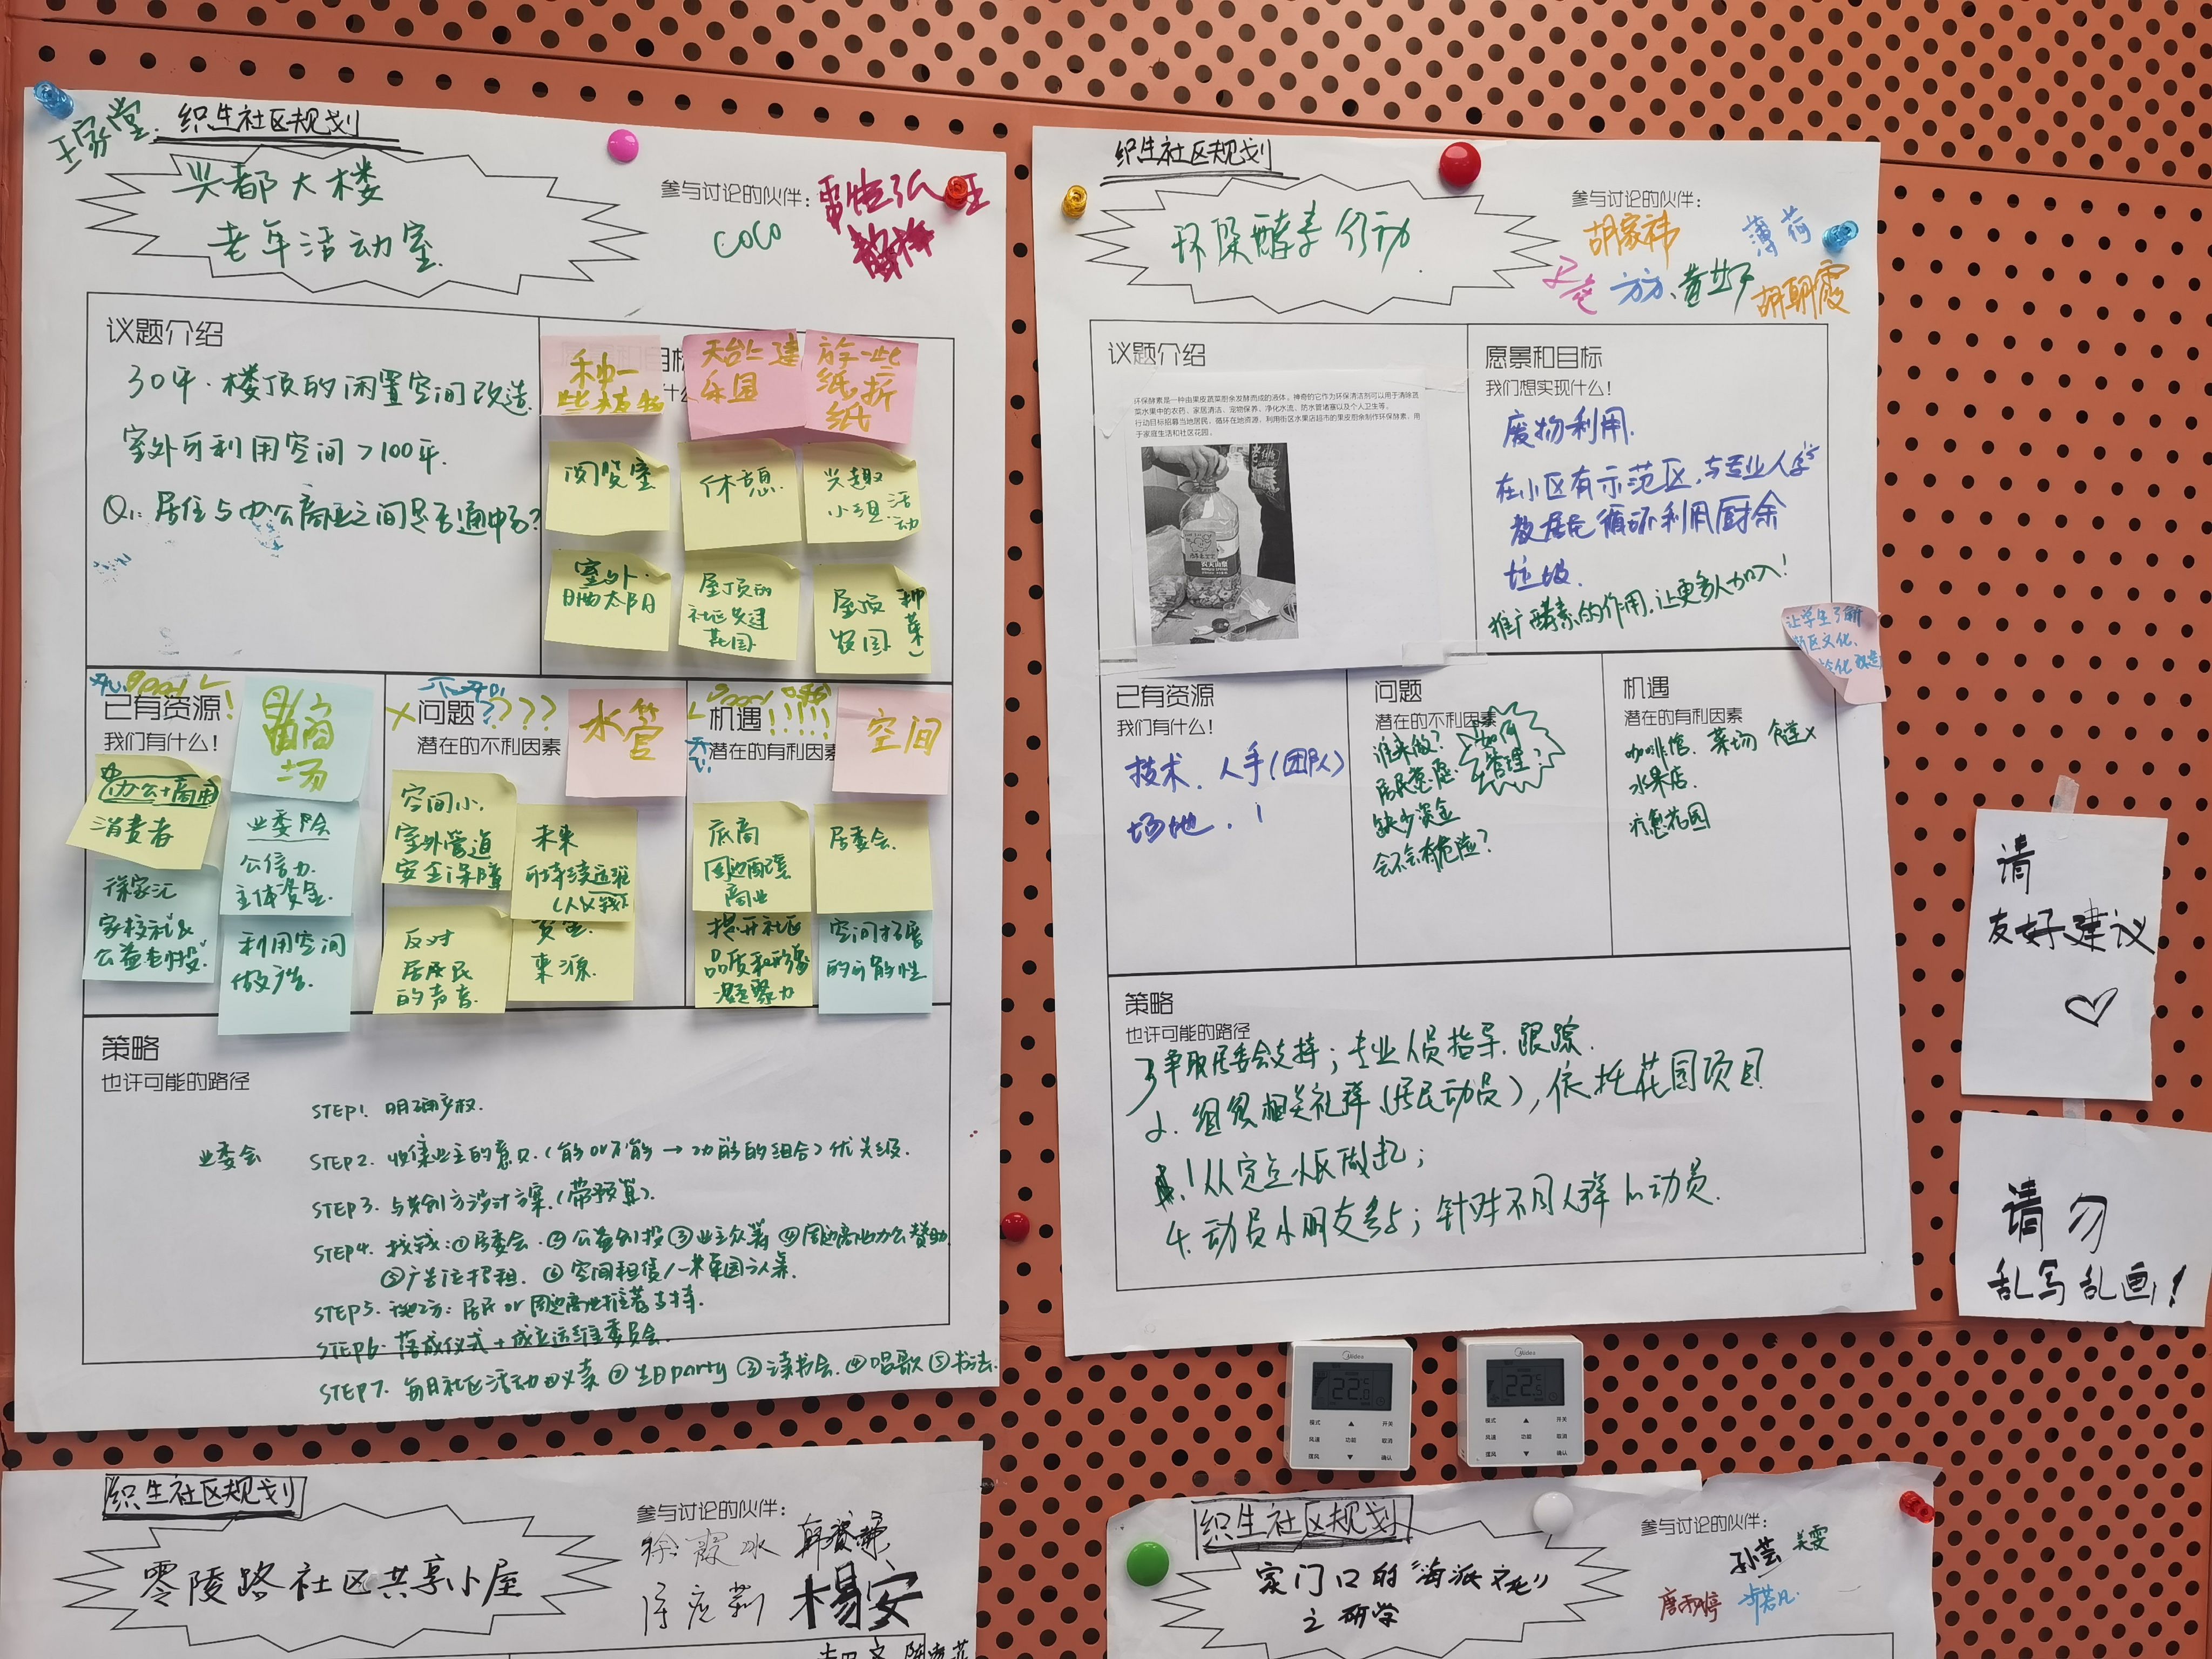 王家堂.
织生社区规划
兴都大楼
老年活动室
参与讨论的伙伴:
COCO
议题介绍
30平.楼顶的闲置空间改造.
室外可利用空间>100平.
Q1. 居住与办公商业之间是否通电梯?
种一
些植物
天台上建
乐园
放一些
纸,折
纸
阅览室
休憩
兴趣
小组活动
室外
晒太阳
屋顶的
社区共建
花园
屋顶
农园
(种菜)
已有资源!
我们有什么!
商
场
办公+商用
消费者
业委会
公信力
主体资金.
徐家汇
家校社区
公益创投.
利用空间
做广告.
问题????
潜在的不利因素
水管
空间小.
室外管道
安全保障
未来
可持续运维
(人又钱)
反对
居民
的声音
资金
来源.
机遇!!!!!
潜在的有利因素
空间
底商
周边配套
商业
居委会.
提升社区
品质和形象
凝聚力
空间拓展
的可能性
策略
也许可能的路径
业委会
STEP1. 明确产权.
STEP2. 收集业主的意见.(能or不能→功能的组合)优先级.
STEP3. 与共创方设计方案.(带预算).
STEP4. 找钱:①居委会.②公益创投③业主众筹 ④周边商业办公赞助
⑤广告位招租. ⑥空间租赁/一米菜园认养.
STEP5. 施工方: 居民or周边商业推荐支持.
STEP6. 落成仪式+成立运维委员会.
STEP7. 每日社区活动①义卖②生日party③读书会.④唱歌⑤书法.
织生社区规划
环保酵素行动
参与讨论的伙伴:
胡家祎
薄荷
方方、
胡朝霞
议题介绍
环保酵素是一种由果皮蔬菜厨余发酵而成的液体。神奇的它作为环保清洁剂可以用于清除蔬
菜水果中的农药、家居清洁、宠物保养、净化水流、防水管堵塞以及个人卫生等。
行动目标招募当地居民,循环在地资源,利用街区水果店超市的果皮厨余制作环保酵素,用
于家庭生活和社区花园。
愿景和目标
我们想实现什么!
废物利用.
在小区有示范区,与专业人士
教居民循环利用厨余
垃圾.
推广酵素的作用,让更多人加入!
让学生了解
已有资源
我们有什么!
技术. 人手(团队)
场地.
问题
潜在的不利因素
谁来做?
居民意愿.
缺少资金
会不会有危险?
如何
管理?
机遇
潜在的有利因素
咖啡馆. 菜场
水果店.
疗愈花园
策略
也许可能的路径
3争取居委会支持;专业人员指导.跟踪.
2. 组织相关社群(居民动员),依托花园项目
1从定点小区做起;
4.动员小朋友参与;针对不同人群的动员.
请
友好建议
♡
请勿
乱写乱画!
Midea
22.0
模式
开关
风速
功能
取消
摆风
确认
Midea
22.5
模式
开关
风速
功能
取消
摆风
确认
织生社区规划
零陵路社区共享小屋
参与讨论的伙伴:
徐霞冰
杨安
织生社区规划
家门口的“海派文化”
之研学
参与讨论的伙伴:
孙芸
吴雯
唐雨婷
卢若凡.